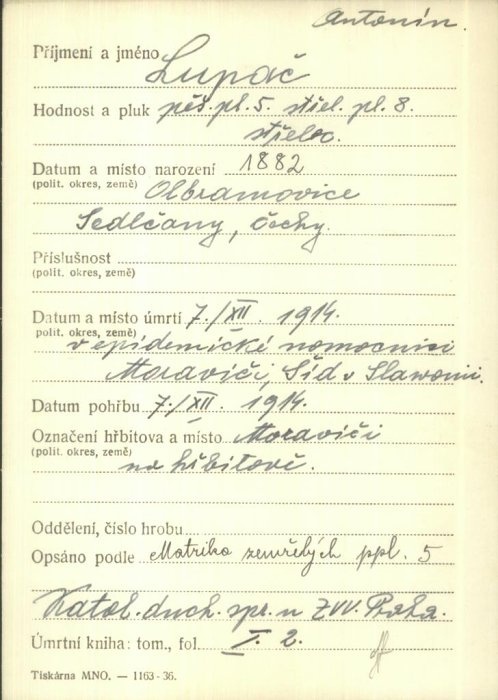 Antonín.
Příjmení a jméno Lupač
Hodnost a pluk pěš. pl. 5. střel. pl. 8.
střelec.
Datum a místo narození 1882
(polit. okres, země) Olbramovice
Sedlčany, Čechy.
Příslušnost
(polit. okres, země)
Datum a místo úmrtí 7./XII. 1914.
polit. okres, země) v epidemické nemocnici
Moraviči, Šid v Slavonii.
Datum pohřbu 7./XII. 1914.
Označení hřbitova a místo Moraviči
(polit. okres, země)
na hřbitově.
Oddělení, číslo hrobu
Opsáno podle Matrika zemřelých ppl. 5
Katol. duch. spr. u ZVV. Praha.
Úmrtní kniha: tom., fol. I. 2.
Tiskárna MNO. — 1163-36.